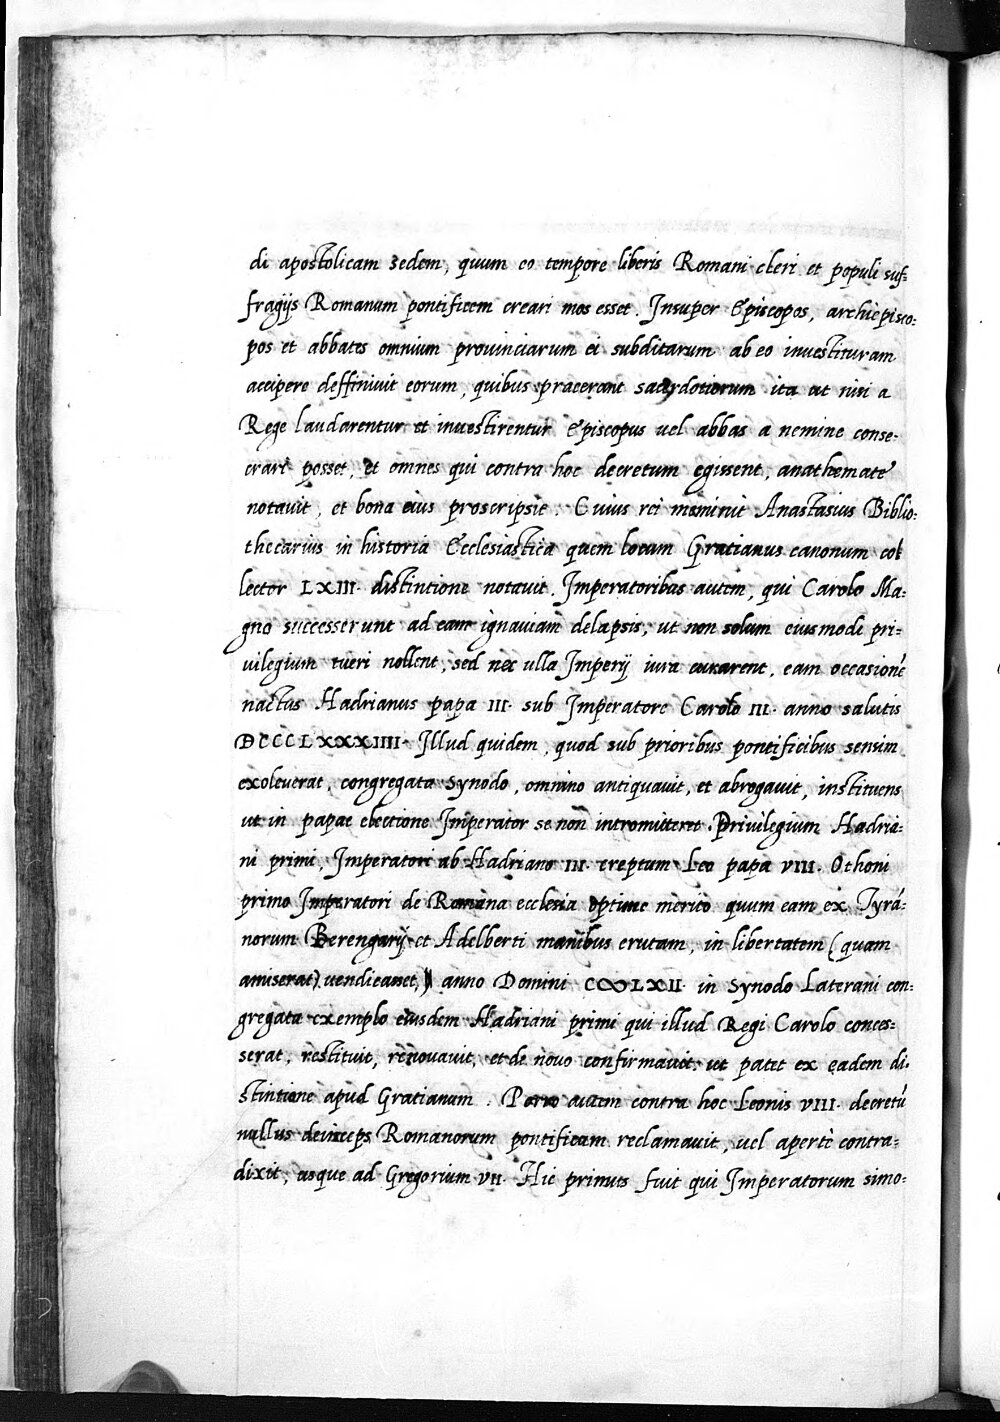 di apostolicam sedem, quum eo tempore liberis Romani cleri et populi suf-
fragijs Romanum pontificem creari mos esset. Insuper Episcopos, archiepisco-
pos et abbates omnium prouinciarum ei subditarum ab eo inuestituram
accipere deffiniuit eorum, quibus praeerant sacerdotiorum ita ut nisi a
Rege laudarentur et inuestirentur Episcopus uel abbas a nemine conse-
crari posset, et omnes qui contra hoc decretum egissent, anathemate
notauit, et bona eius proscripsit. Cuius rei meminit Anastasius Biblio-
thecarius in historia Ecclesiastica quem locum Gratianus canonum col
lector LXIII. distintione notauit. Imperatoribus autem, qui Carolo Ma-
gno successerunt ad eam ignauiam delapsis, ut non solum eiusmodi pri-
uilegium tueri nollent, sed nec ulla Imperij iura curarent, eam occasionē
nactus Hadrianus papa III. sub Imperatore Carolo III. anno salutis
DCCCLXXXIIII. Illud quidem, quod sub prioribus pontificibus sensim
exoleuerat, congregata Synodo, omnino antiquauit, et abrogauit, instituens
ut in papae electione Imperator se non intromitteret. Priuilegium Hadria-
ni primi, Imperatori ab Hadriano III. ereptum Leo papa VIII. Othoni
primo Imperatori de Romana ecclesia optime merito quum eam ex Tyrá-
norum Berengarij et Adelberti manibus erutam, in libertatem (quam
amiserat) uendicasset, anno Domini CↀLXII in Synodo Laterani con-
gregata exemplo eiusdem Hadriani primi qui illud Regi Carolo conces-
serat, restituit, renouauit, et de nouo confirmauit. ut patet ex eadem di-
stintione apud Gratianum. Porro autem contra hoc Leonis VIII. decretū
nullus deinceps Romanorum pontificum reclamauit, uel apertè contra-
dixit, usque ad Gregorium VII. Hic primus fuit qui Imperatorum simo-